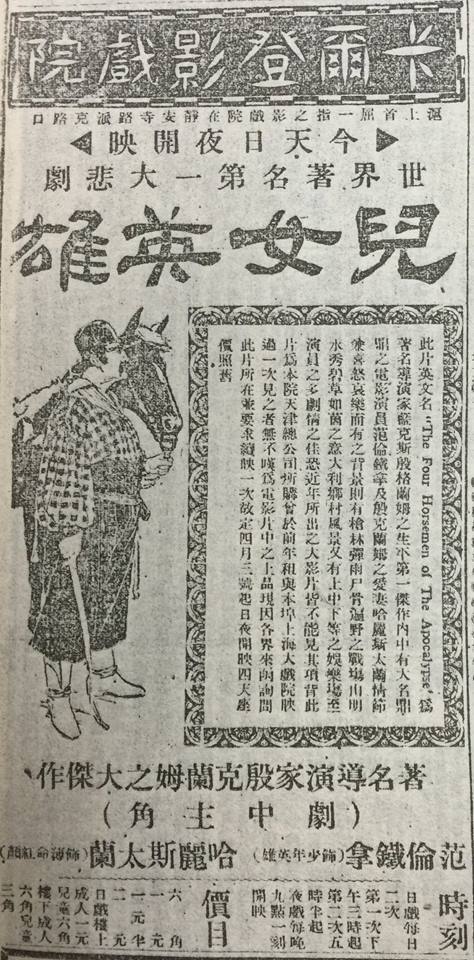 卡爾登影戲院
滬上首屈一指之影戲院在靜安寺路派克路口
今天日夜開映
世界著名第一大悲劇
兒女英雄
此片英文名“The Four Horsemen of The Apocalypse”爲
著名導演家藍克斯殷格蘭姆之生平第一傑作內中有大名鼎
鼎之電影演員范倫鐵拿及殷克蘭姆之愛妻哈麗斯太蘭情節
兼喜怒哀樂而有之背景則有槍林彈雨尸骨遍野之戰塲山明
水秀碧草如茵之意大利鄉村風景又有上中下等之娛樂塲至
演員之多劇情之佳恐近年所出之大影片皆不能見其項背此
片爲本院天津總公司所購曾於前年租與本埠上海大戲院映
過一次見之者無不嘆爲電影片中之上品現因各界來函詢問
此片所在並要求續映一次故定四月三號起日夜開映四天座
價照舊
著名導演家殷克蘭姆之大傑作
(劇中主角)
范倫鐵拿(飾少年英雄) 哈麗斯太蘭(飾薄命紅顏)
時刻
日戲每日
二次
第一次下
午三時起
第二次五
時半起
夜戲每晚
九點一刻
開映
價目
六角
一元
一元半
二元
日戲樓上
成人一元
兒童六角
樓下成人
六角兒童
三角